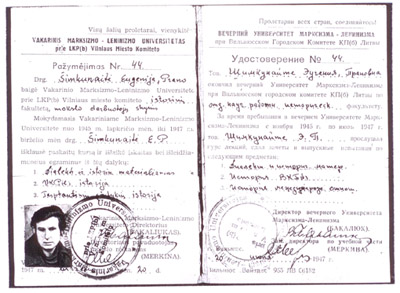 Visų šalių proletarai, vienykitės!
VAKARINIS MARKSIZMO - LENINIZMO UNIVERSITETAS
prie LKP(b) Vilniaus Miesto Komiteto
Pažymėjimas Nr. 44.
Drg. Šimkunaitė Eugenija, Prano
baigė Vakarinio Marksizmo-Leninizmo Universiteto
prie LKP(b) Vilniaus miesto komiteto istorin.
fakultetą, mokslo darbuotojų
Mokydamasis Vakariniame Marksizmo-Leninizmo
Universitete nuo 1945 m. lapkričio mėn. iki 1947 m.
birželio mėn. Šimkunaitė E. P.
išklausė paskaitų kursą ir išlaikė įskaitas bei
egzaminus iš šių dalykų:
1. Dialekt. ir istorin. materializmas
2. VKP(b) istorija
3. istorija
Vakarinio Marksizmo-Leninizmo
Universiteto Direktorius
(BAKALIUKAS)
(MERKINA)
1947 m. 20 d.
Пролетарии всех стран, соединяйтесь!
ВЕЧЕРНИЙ УНИВЕРСИТЕТ МАРКСИЗМА - ЛЕНИНИЗМА
при Вильнюсском Городском Комитете КП(б) Литвы
Удостоверение № 44.
Тов. Шимкунайте, Эугения, Прановна
окончила вечерний Университет Марксизма-Ленинизма
при Вильнюсском городском комитете КП(б) Литвы по
отд. науч. работн. историческ. факультету.
За время пребывания в вечернем Университете Марк-
сизма-Ленинизма с ноября 1945 г. по июнь 1947 г.
Шимкунайте, Э. П.
прослушал курс лекций, сдал зачеты и выпускные испытания по
следующим предметам:
1. Диалект. и историч. матер.
2. История ВКП(б).
3. История международ. отнош.
Директор вечернего Университета
Марксизма-Ленинизма
(БАКАЛЮК)
директора по учебной части
(МЕРКИНА)
20 1947 г.